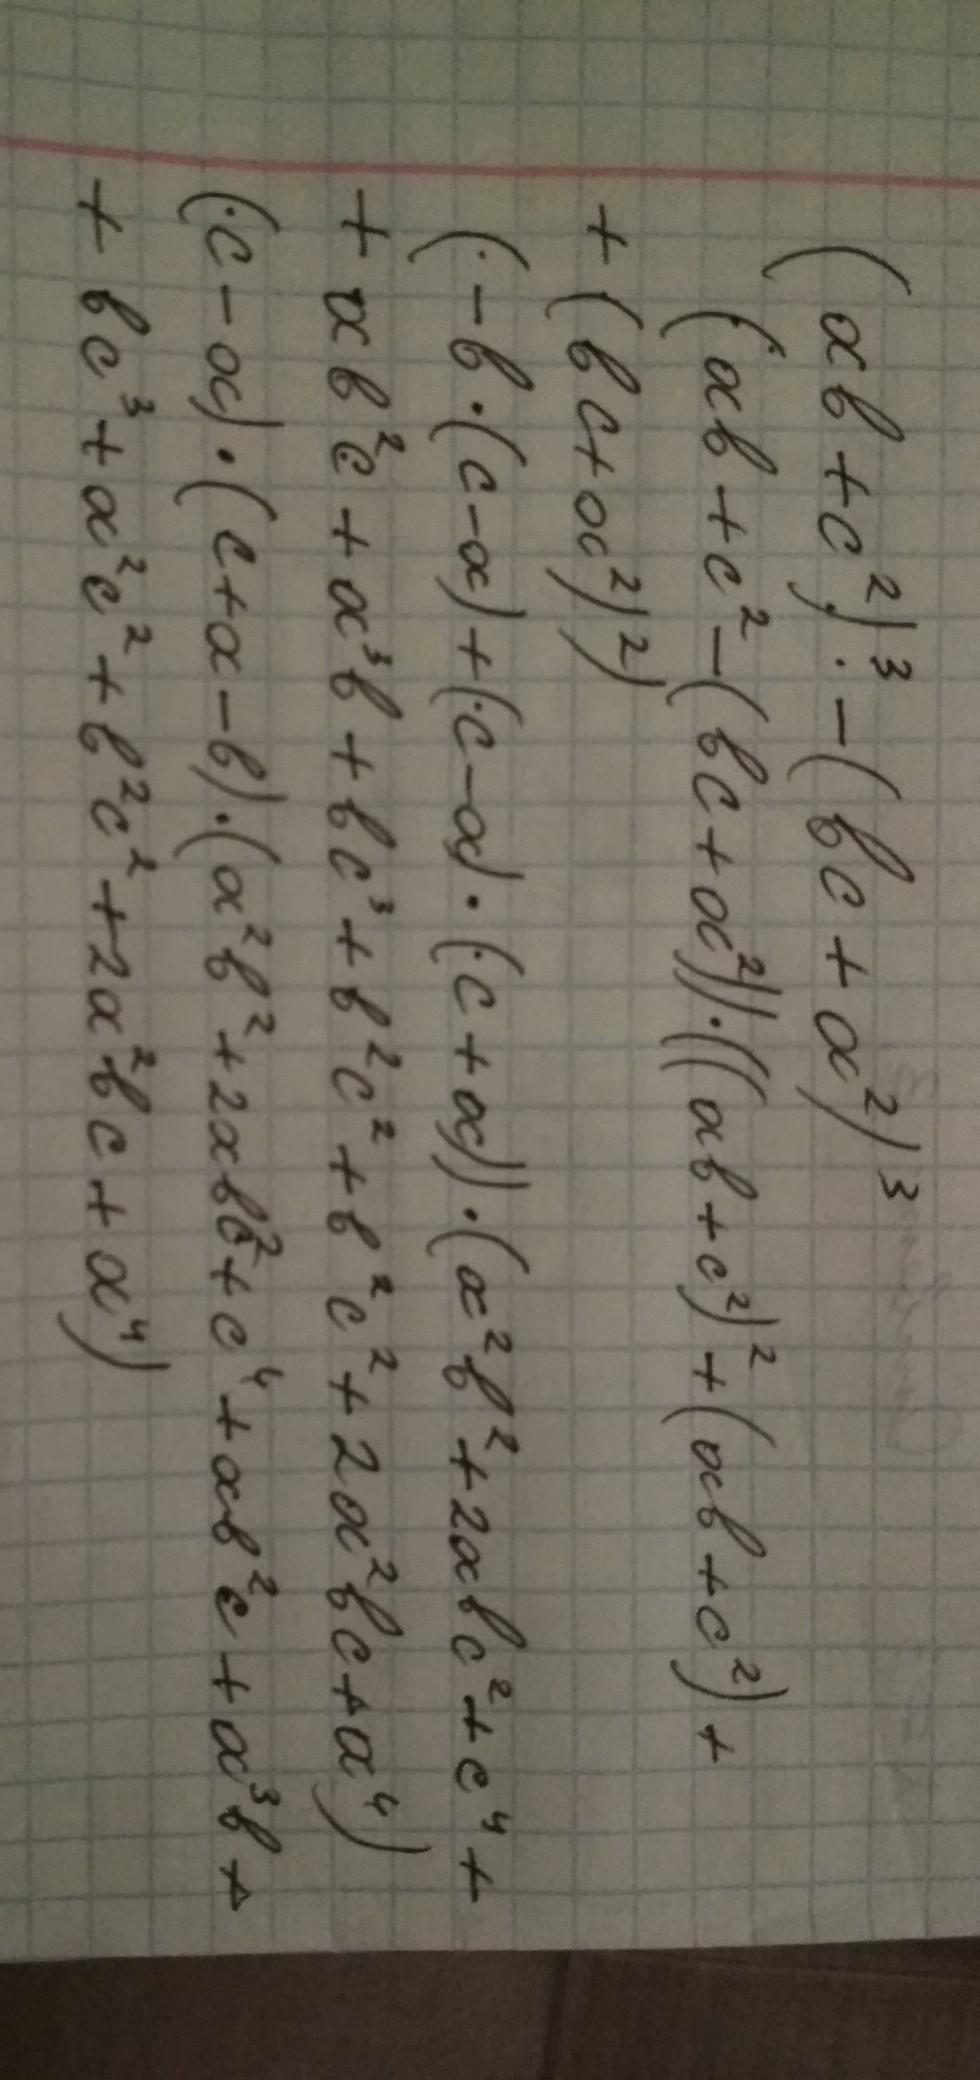 (ab+c²)³-(bc+a²)³
(ab+c²-(bc+a²))·((ab+c²)²+(ab+c²)+
+(bc+a²)²)
(-b·(c-a)+(c-a)·(c+a))·(a²b²+2abc²+c⁴+
+ab²c+a³b+bc³+b²c²+b²c²+2a²bc+a⁴)
(c-a)·(c+a-b)·(a²b²+2abc²+c⁴+ab²c+a³b+
+bc³+a²c²+b²c²+2a²bc+a⁴)